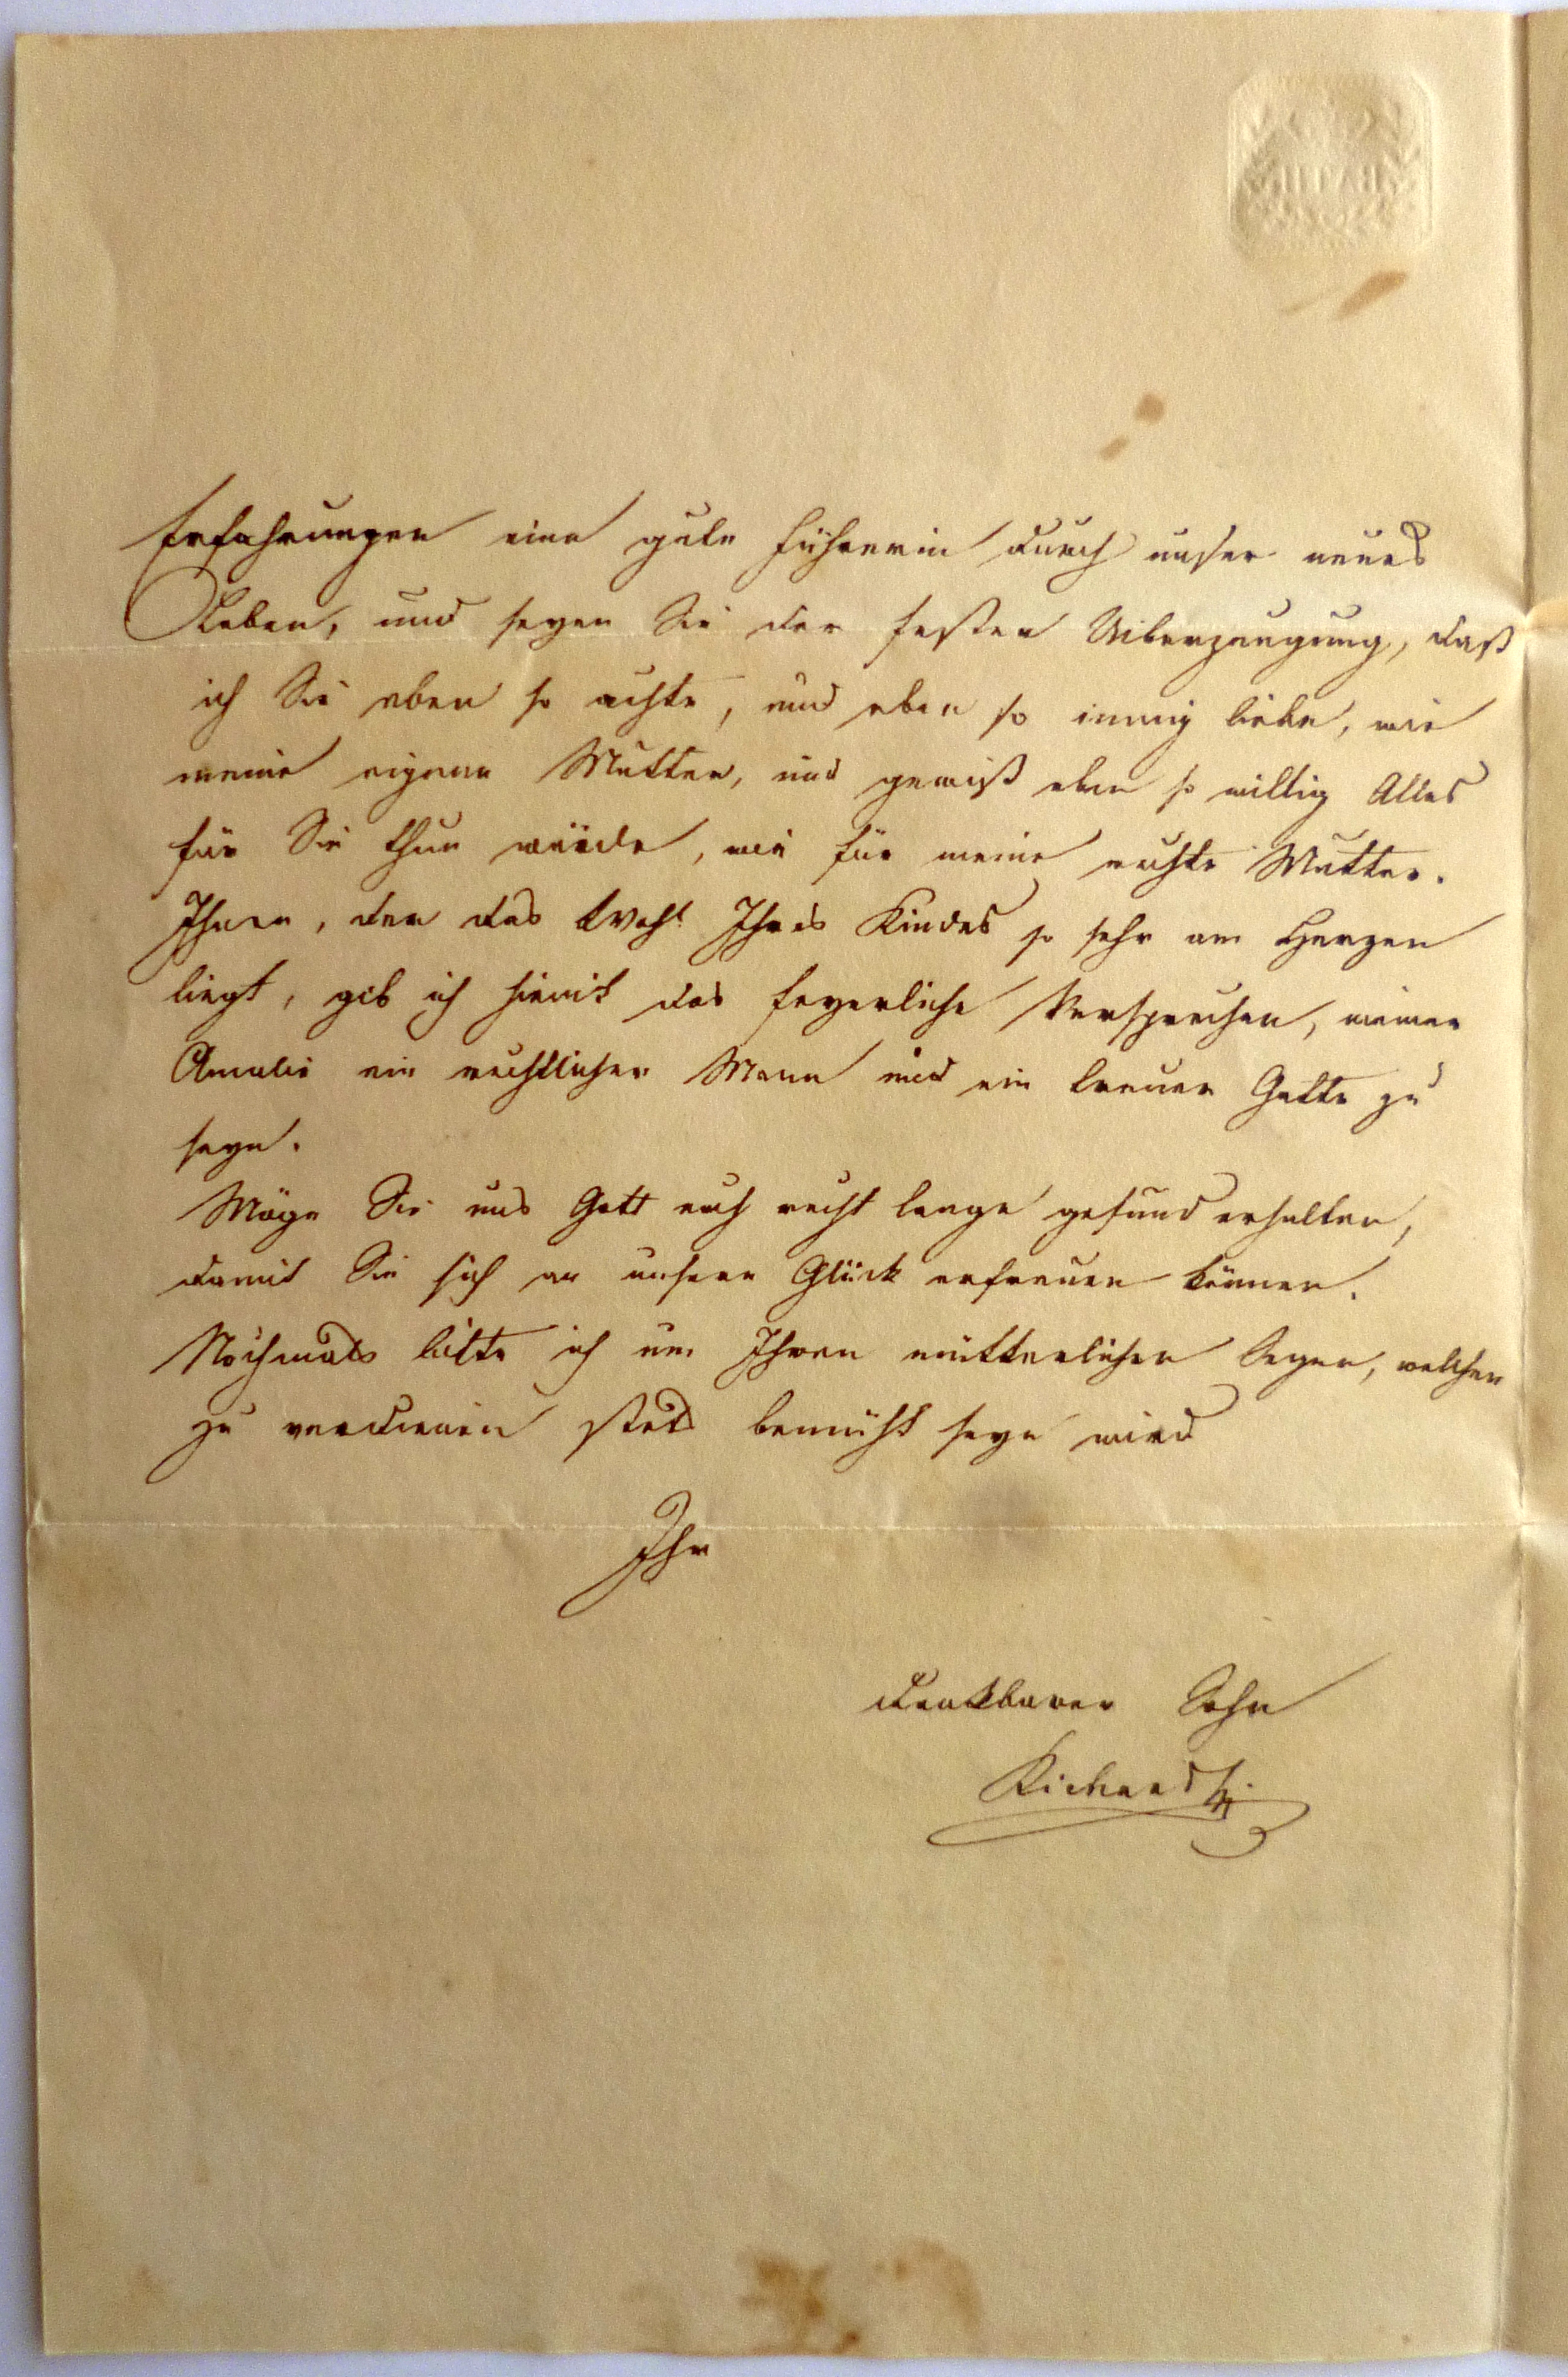 Erfahrungen eine gute Führerin durch unser neues
Leben, und seyen Sie der festen Uiberzeugung, daß
ich Sie eben so achte, und eben so innig liebe, wie
meine eigene Mutter, und gewiß eben so willig Alles
für Sie thun würde, wie für meine rechte Mutter.
Ihnen, der das Wohl Ihres Kindes so sehr am Herzen
liegt, gib ich hiemit das feyerliche Versprechen, meiner
Amalie ein rechtlicher Mann und ein treuer Gatte zu
seyn.
Möge Sie uns Gott noch recht lange gesund erhalten,
damit Sie sich an unsern Glück erfreuen können.
Nochmals bitte ich um Ihren mütterlichen Segen, welchen
zu verdienen stets bemüht seyn wird
Ihr
dankbarer Sohn
Richard